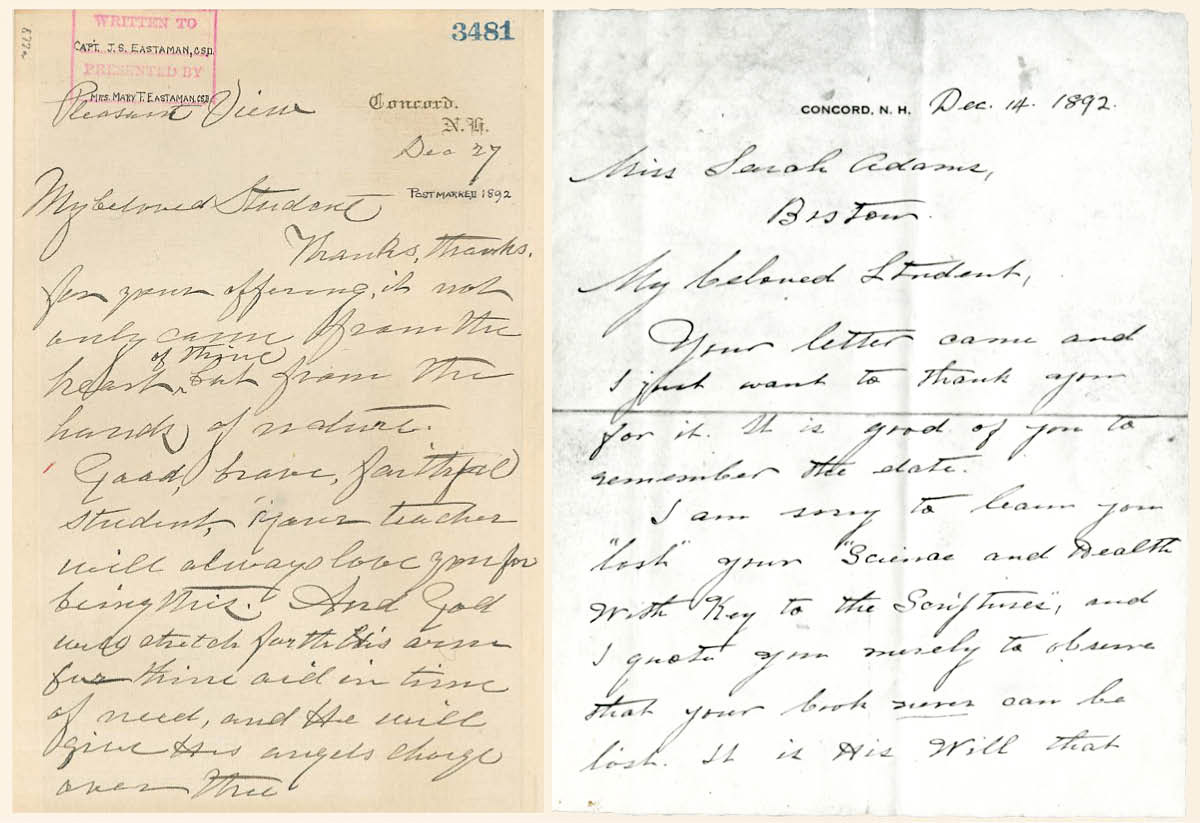 877a
WRITTEN TO
CAPT. J. S. EASTAMAN, C.S.D.
PRESENTED BY
MRS. MARY T. EASTAMAN, C.S.D.
3481
Pleasant View
Concord.
N.H.
Dec 27
POSTMARKED 1892
My beloved Student
Thanks, thanks,
for your offering, it not
only came from the
heart of thine, but from the
hands of nature.
Good, brave, faithful
student, your teacher
will always love you for
being this. And God
will stretch forth His arm
for thine aid in time
of need, and He will
give His angels charge
over thee
CONCORD, N. H. Dec. 14. 1892.
Miss Sarah Adams,
Boston.
My beloved Student,
Your letter came and
I just want to thank you
for it. It is good of you to
remember the date.
I am sorry to learn you
"lost" your "Science and Health
With Key to the Scriptures", and
I quote you merely to observe
that your book never can be
lost. It is His Will that